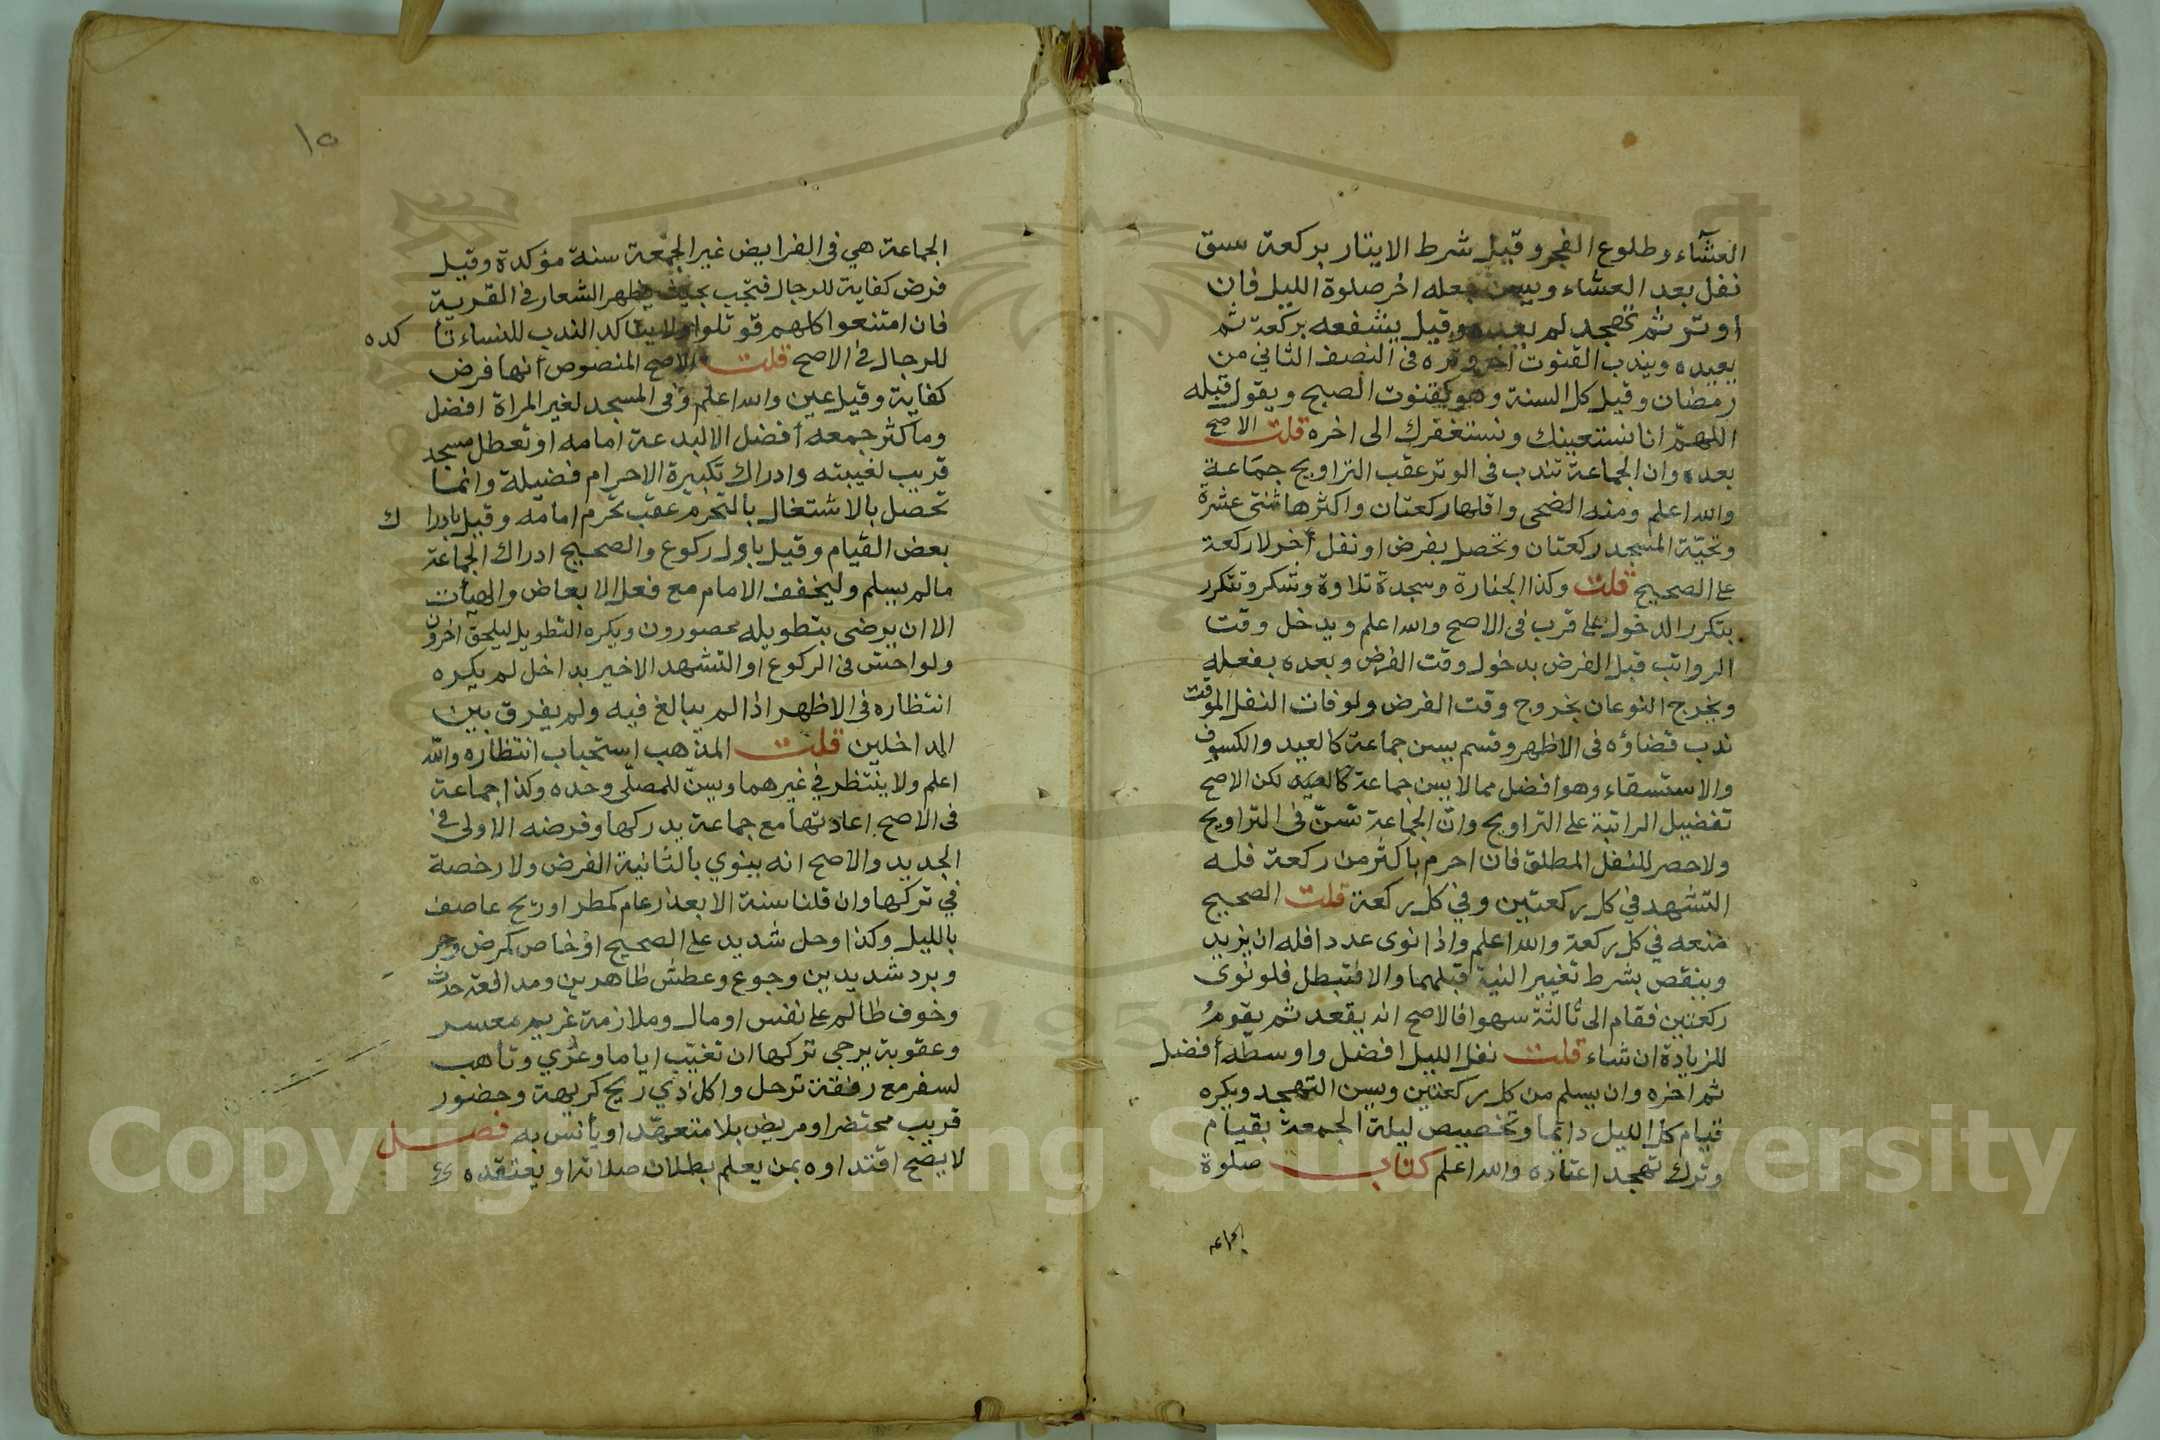 العشآء وطلوع الفجر وقيل شرط الايتار بركعة سبق
نفل بعد العشاء ويسن جعله اخر صلوة الليل فان
اوتر ثم تهجد لم يعده وقيل يشفعه بركعة ثم
يعيده ويندب القنوت اخر وتره فى النصف الثاني من
رمضان وقيل كل السنة وهو كقنوت الصبح ويقول قبله
اللهمّ انا نستعينك ونستغفرك الى اخره قلت الاصح
بعده وان الجماعة تندب فى الوتر عقب التراويح جماعة
والله اعلم ومنه الضحى واقلها ركعتان واكثرها ثنتى عشرة
وتحيّة المسجد ركعتان وتحصل بفرض او نفل أخر لا ركعة
على الصحيح قلت وكذا الجنازة وسجدة تلاوة وشكر وتتكرر
بتكرر الدخول على قرب فى الاصح والله اعلم ويدخل وقت
الرواتب قبل الفرض بدخول وقت الفرض وبعده بفعله
ويخرج النوعان بخروج وقت الفرض ولو فات النفل الموقت
ندب قضاؤه فى الاظهر وقسم يسن جماعة كالعيد والكسوف
والاستسقاء وهو افضل مما لا يسن جماعة كالعيد لكن الاصح
تفضيل الراتبة على التراويح وانّ الجماعة تسنّ فى التراويح
ولا حصر للنفل المطلق فان احرم باكثر من ركعة فله
التشهد في كل ركعتين وفي كل ركعة قلت الصحيح
منعه في كل ركعة والله اعلم واذا نوى عددا فله ان يزيد
وينقص بشرط تغيير النية قبلهما والا فتبطل فلو نوى
ركعتين فقام الى ثالثة سهوا فالاصح انه يقعد ثم يقومُ
للزيادة ان شاء قلت نفل الليل افضل واوسطه أفضل
ثم اخره وان يسلم من كل ركعتين ويسن التهجد ويكره
قيام كل الليل دائما وتخصيص ليلة الجمعة بقيام
وترك تهجد اعتاده والله اعلم كتاب صلوة
الجماعه
١٥
الجماعة هي فى الفرايض غير الجمعة سنة مؤكدة وقيل
فرض كفاية للرجال فتجب بحيث يظهر الشعار فى القرية
فان امتنعوا كلهم قوتلوا ولا يتاكد الندب للنساء تا كده
للرجال فى الاصح قلت الاصح المنصوص أنها فرض
كفاية وقيل عين والله اعلم وفى المسجد لغير المراة افضل
وما كثر جمعه أفضل الا لبدعة امامه او تعطل مسجد
قريب لغيبته وادراك تكبيرة الاحرام فضيلة وانما
تحصل بالاشتغال بالتحرم عقب تحرم امامه وقيل بادرا ك
بعض القيام وقيل باول ركوع والصحيح ادراك الجماعة
مالم يسلم وليخفف الامام مع فعل الابعاض والهيأت
الا ان يرضى بتطويله محصورون ويكره التطويل ليلحق اخرون
ولو احس فى الركوع او التشهد الاخير بداخل لم يكره
انتظاره فى الاظهر اذا لم يبالغ فيه ولم يفرق بين
الداخلين قلت المذهب استحباب انتظاره والله
اعلم ولا ينتظر في غيرهما ويسنّ للمصلّى وحده وكذا جماعة
فى الاصح اعادتها مع جماعة يدركها وفرضه الاولى في
الجديد والاصح انه ينوي بالثانية الفرض ولا رخصة
في تركها وان قلنا سنة الا بعذر عام كمطر او ريح عاصف
بالليل وكذا وحل شديد على الصحيح او خاص كمرض وحر
وبرد شديدين وجوع وعطش ظاهرين ومدافعة حدث
وخوف ظالم على نفس او مال وملازمة غريم معسر
وعقوبة يرجى تركها ان تغيّب اياما وعُرْي وتأهب
لسفر مع رفقة ترحل واكل ذي ريح كريهة وحضور
قريب محتضر او مريض بلا متعهّد او يأنس به فصل
لا يصح اقتداوه بمن يعلم بطلان صلاته او يعتقده
Copyright © King Saud University